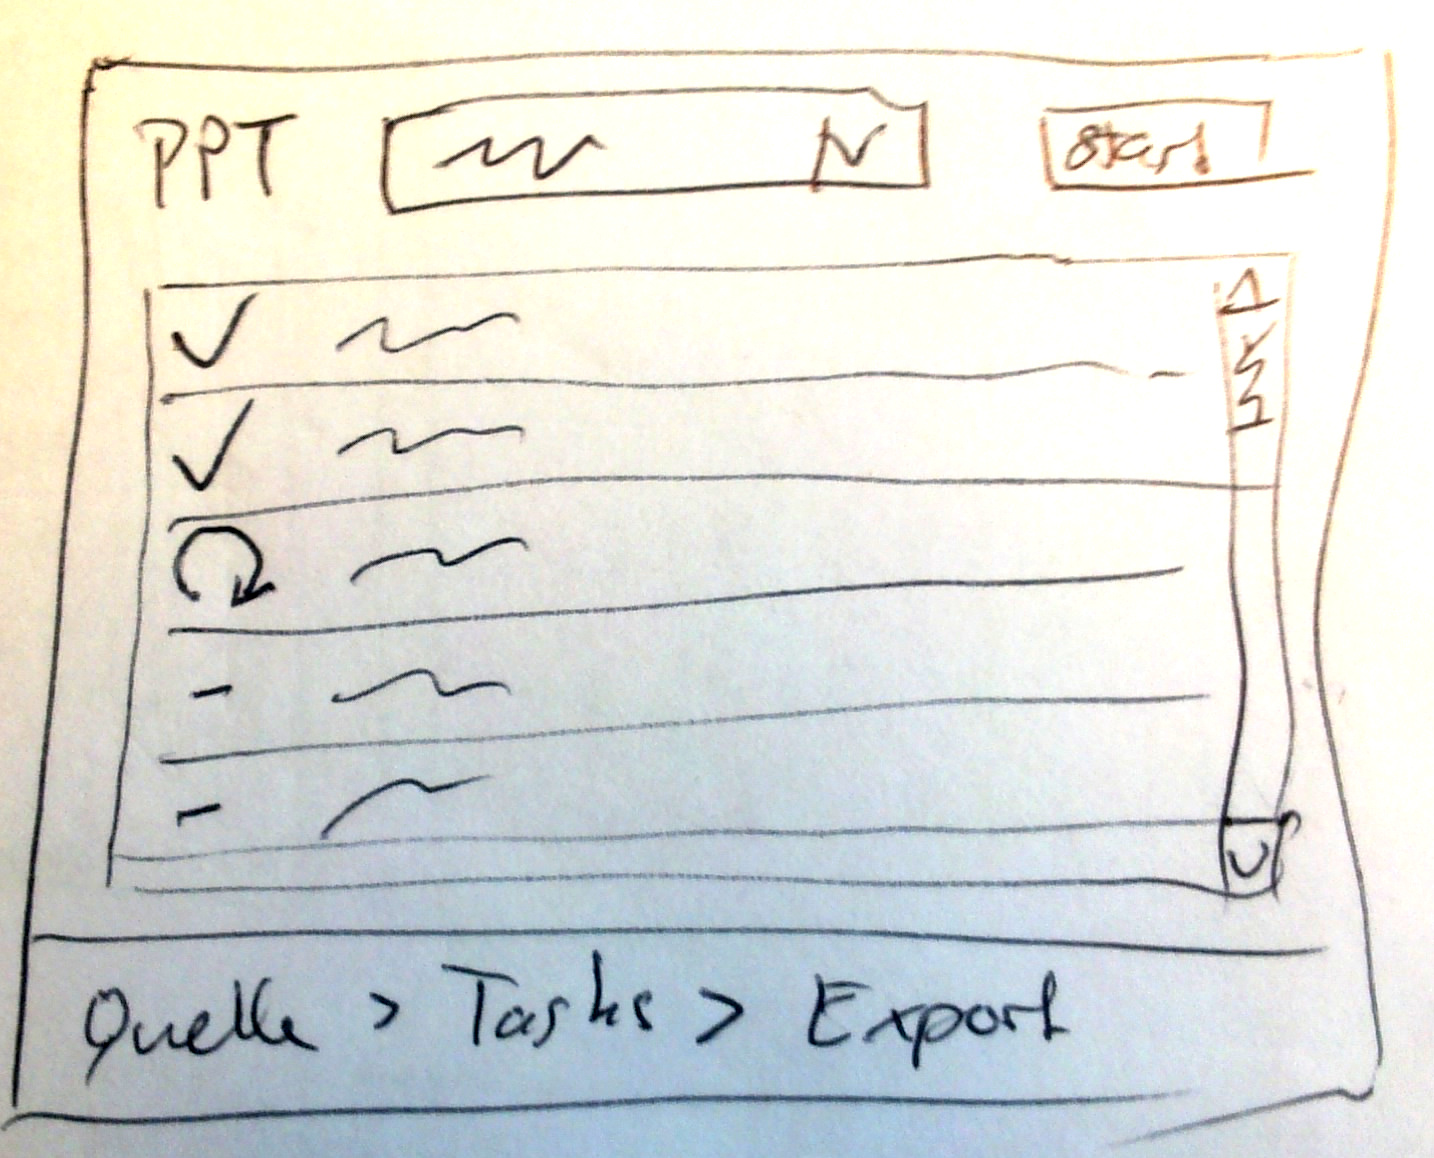 PPT Start
Quelle > Tasks > Export